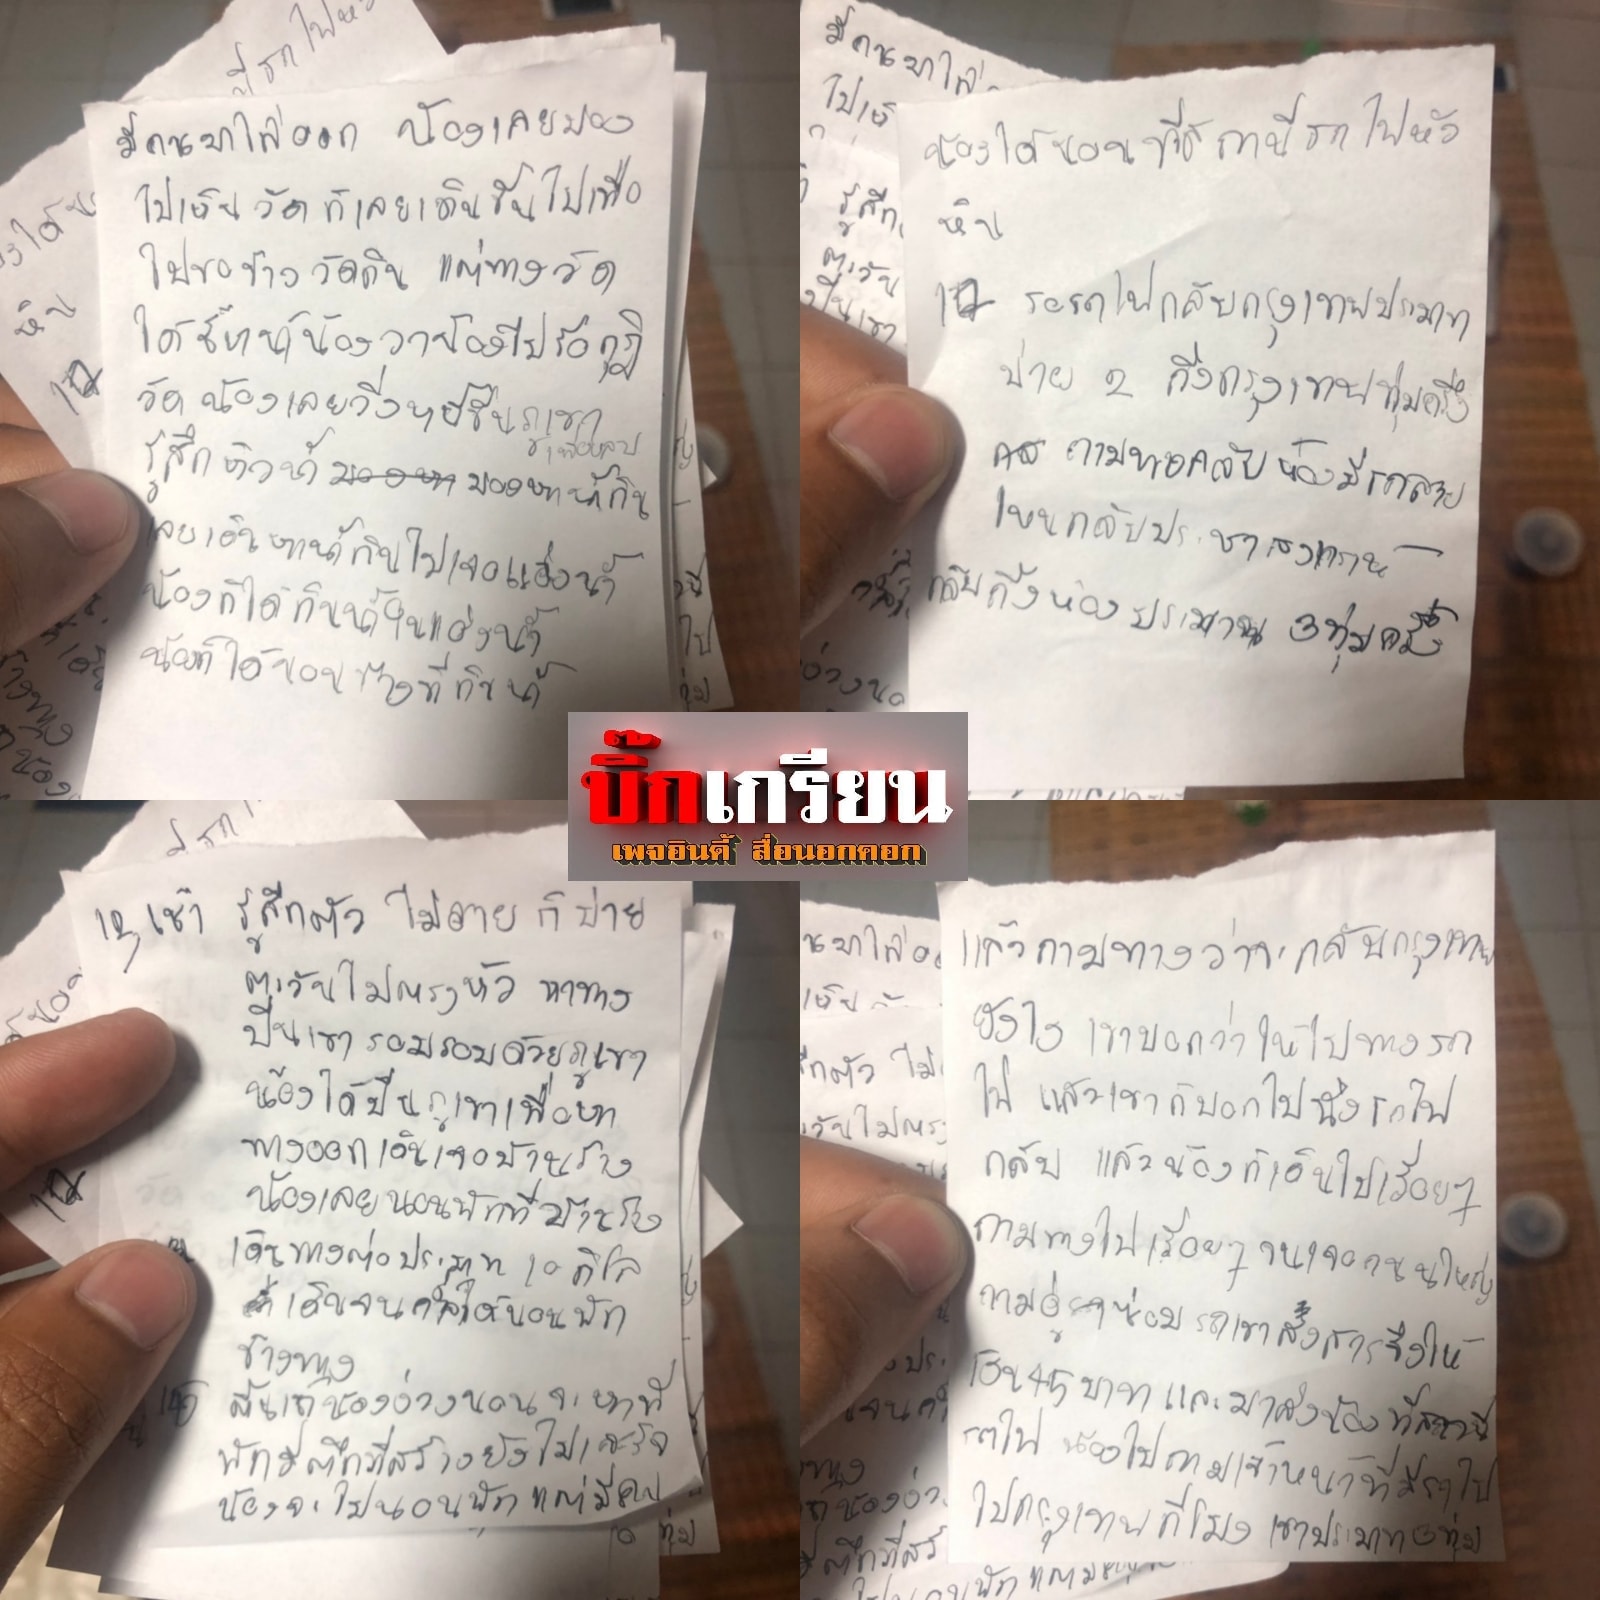 มีคนมาไล่ออก น้องเลยมอง
ไปเห็น วัด ก็เลยเดินขึ้นไปเพื่อ
ไปขอข้าว วัดกิน แต่ทางวัด
วัด น้องเลยวิ่งหนีขึ้นภูเขา
รู้สึก หิวน้ำ มองหา มองหาน้ำกิน
เลยเดินหาน้ำกินไปเจอแอ่งน้ำ
น้องก็ได้กินน้ำในแอ่งน้ำ
น้องก็ได้นอนข้างที่กินน้ำ
น้องได้นอนที่สถานีรถไฟหัว
หิน
12 รอรถไฟกลับกรุงเทพประมาท
บ่าย 2 ถึงกรุงเทพทุ่มครึ่ง
ถามทอกลับห้องมีรถสาย
ไหนกลับประชาสงเคราห์
กลับถึงห้องประมาณ 3 ทุ่มครึ่ง
บิ๊กเกรียน
เพจอินดี้ สื่อนอกคอก
12, เช้า รู้สึกตัว ไม่ตาย ก็บ่าย
ตะวันไม่ตรงหัว หาทาง
ปีนเขา รอมรอมด้วยภูเขา
น้องได้ปีนภูเขาเพื่อหา
ทางออก เดินเจอบ้านร้าง
น้องเลยนอนพักที่บ้านร้าง
เดินทางต่อประมาท 10 กิโล
เดินจนได้นอนพัก
ข้างทาง
น้องง่วงนอน จะหาที่
พักมีตึกที่สร้างยังไม่เสร็จ
น้องจะไปนอนพัก แต่มีคน
แล้วถามทางว่าจะกลับกรุงเทพ
ยังไง เขาบอกว่าให้ไปทางรถ
ไฟ แล้วเขาก็บอกไปนั่งรถไฟ
กลับ แล้วน้องก็เดินไปเรื่อยๆ
ตามทางไปเรื่อยๆ จนเจอถนนใหญ่
ถามอู่ซ่อมรถเขาสงสารจึงให้
เงิน 45 บาท และมาส่งน้องที่สถานี
รถไฟ น้องไปถามเจ้าหน้าที่มีรถไป
ไปกรุงเทพกี่โมง เขาประมาท 3 ทุ่ม